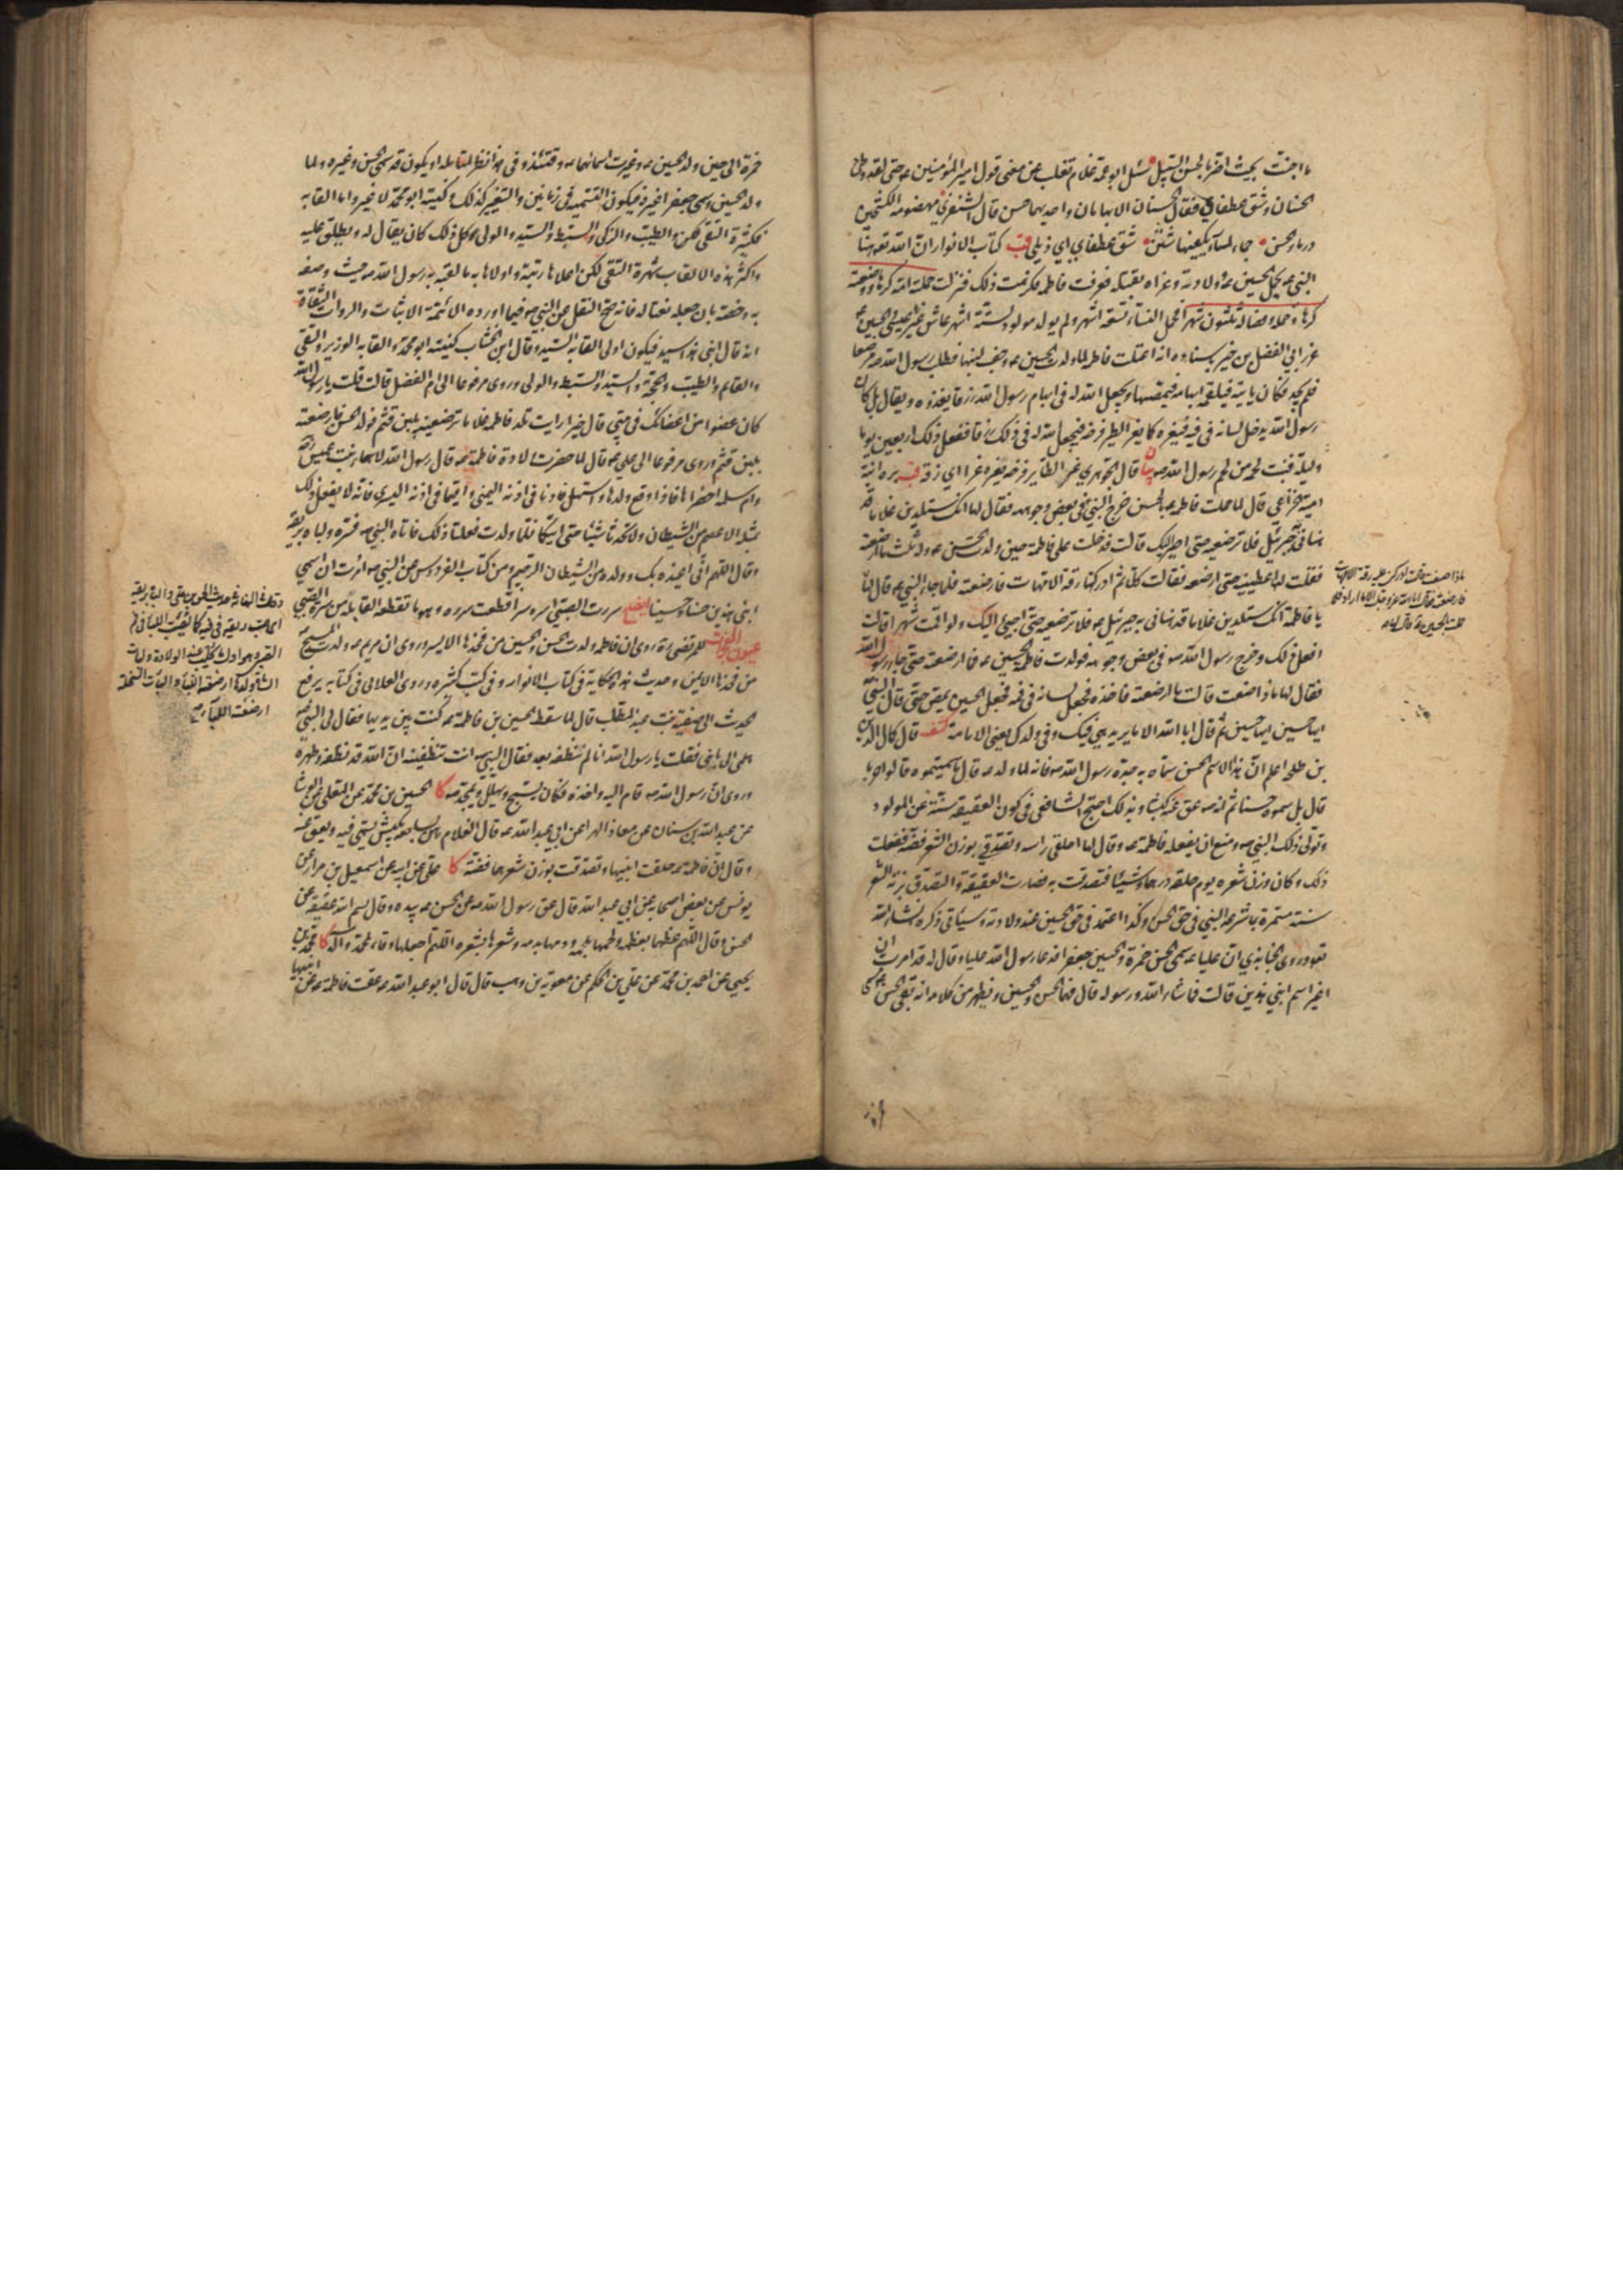 ما اجنت بحيث اضر بالحسن السبيل سئل ابو عمر غلام ثعلب عن معنى قول امير المؤمنين عم حتى لقد وطئ
الحسنان وشق عطفاي فقال الحسنان الابهامان واحدهما حسن قال الشنفرى مهضومة الكشحين
درماء الحسن جماء ملساء بكفيها شثن شق عطفاي اي ذيلي قب كتاب الانوار ان الله تع هنأ
النبي ص بحمل الحسين ع وولادته وعزاه بقتله فعرفت فاطمة فكرهت ذلك فنزلت حملته امه كرها ووضعته
كرها وحمله وفصاله ثلثون شهرا فحمل النساء تسعة اشهر ولم يولد مولود لستة اشهر عاش غير عيسى والحسين ع
غرر ابي الفضل بن خيرانه باسناده انه اعتلت فاطمة لما ولدت الحسين ع وجف لبنها فطلب رسول الله ص مرضعا
فلم يجد فكان ياتيه فيلقمه ابهامه فيمصها ويجعل الله له في ابهام رسول الله رزقا يغذوه ويقال بل كان
رسول الله يدخل لسانه في فيه فيغره كما يغر الطير فرخه فيجعل الله له في ذلك رزقا ففعل ذلك اربعين يوما
وليلة فنبت لحمه من لحم رسول الله ص بيان قال الجوهري غر الطاير فرخه يغره غرا اي زقه قب بره ابنة
امية الخزاعي قال لما حملت فاطمة ع بالحسن خرج النبي ص في بعض وجوهه فقال لها انك ستلدين غلاما قد
هنأني به جبرئيل فلا ترضعيه حتى اصير اليك قالت فدخلت على فاطمة حين ولدت الحسن ع وله ثلث ما ارضعته
فقلت لها اعطينيه حتى ارضعه فقالت كلا ثم ادركتها رقة الامهات فارضعته فلما جاء النبي ص قال لها
يا فاطمة انك ستلدين غلاما قد هنأني به جبرئيل ع فلا ترضعيه حتى اجيئ اليك ولو اقمت شهرا قالت
افعل ذلك وخرج رسول الله ص في بعض وجوهه فولدت فاطمة الحسين ع فما ارضعته حتى جاء رسول الله
فقال لها ماذا صنعت قالت ما ارضعته فاخذه فجعل لسانه في فمه فجعل الحسين يمص حتى قال النبي
ايها حسين ايها حسين ثم قال ابا الله الا ما يريد هي فيك وفي ولدك يعني الامامة كشف قال كمال الدين
بن طلحة اعلم ان هذا الاسم الحسن سماه به جده رسول الله ص فانه لما ولد ع قال ما سميتموه قالوا حربا
قال بل سموه حسنا ثم انه ص عق عنه كبشا وبذلك احتج الشافعي في كون العقيقة سنة عن المولود
وتولى ذلك النبي ص ومنع ان يفعله فاطمة ع وقال لها احلقي راسه وتصدقي بوزن الشعر فضة ففعلت
ذلك وكان وزن شعره يوم حلقه درهما وشيئا فتصدقت به فصارت العقيقة والتصدق بزنة الشعر
سنة مستمرة بما شرعه النبي في حق الحسن وكذا اعتمد في حق الحسين عند ولادته وسياتي ذكره انشاء الله
تع وروى الجنابذي ان عليا ع سمى الحسن حمزة والحسين جعفرا فدعا رسول الله عليا وقال له قد امرت ان
اغير اسم ابني هذين قالت فما شاء الله ورسوله قال فهما الحسن والحسين ويظهر من كلامه انه بقي الحسن مسمى
ماذا صنعت قالت ادركني عليه رقة الامهات
فارضعته فقال ابا الله عز وجل الا ما اراد فلما
حملت بالحسين ع قال لها
حمزة الى حين ولد الحسين ع وغيرت اسماؤهما وقتئذ وفي هذا نظر لمتأمله او يكون قد سمى الحسن وغيره ولما
ولد الحسين وسمي جعفرا غيره فيكون التسمية في زمانين والتغيير كذلك وكنيته ابو محمد لا غير واما القابه
فكثيرة التقي والطيب والزكي والسيد والسبط والولي كل ذلك كان يقال له ويطلق عليه
واكثر هذه الالقاب شهرة التقي لكن اعلاها رتبة واولاها به ما لقبه به رسول الله ص حيث وصفه
به وخصه بان جعله نعتا له فانه صح النقل عن النبي ص فيما اورده الائمة الاثبات والرواة الثقاة
انه قال ابني هذا سيد فيكون اولى القابه السيد وقال ابن الخشاب كنيته ابو محمد والقابه الوزير والتقي
والقايم والطيب والحجة والسيد والسبط والولي وروى مرفوعا الى ام الفضل قالت قلت يا رسول الله
كان عضوا من اعضائك في بيتي قال خيرا رايت تلد فاطمة غلاما ترضعينه بلبن قثم فولدت الحسن فارضعته
بلبن قثم وروى مرفوعا الى علي ع قال لما حضرت ولادة فاطمة ع قال رسول الله لاسماء بنت عميس
وام سلمة احضراها فاذا وقع ولدها واستهل فاذنا في اذنه اليمنى واقيما في اذنه اليسرى فانه لا يفعل ذلك
بمثله الا عصم من الشيطان ولا تحدثا شيئا حتى اتيكما فلما ولدت فعلتا ذلك فاتاه النبي ص فسره ولباه بريقه
وقال اللهم اني اعيذه بك وولده من الشيطان الرجيم ومن كتاب الفردوس عن النبي ص امرت ان اسمي
ابني هذين حسنا وحسينا ايضاح سررت الصبي اسره سرا قطعت سرره وهو ما تقطعه القابلة من سرة الصبي
عيون المعجزات للمرتضى ره روى ان فاطمة ولدت الحسن والحسين من فخذها الايسر وروى ان مريم ع ولدت المسيح
من فخذها الايمن وحديث هذه الحكاية في كتاب الانوار وفي كتب كثيرة وروى العلائي في كتابه يرفع
الحديث الى صفية بنت عبد المطلب قال لما سقط الحسين بن فاطمة ع كنت بين يديها فقال لي النبي ص
هلمي الي بابني فقلت يا رسول الله انا لم ننظفه بعد فقال النبي ص انت تنظفينه ان الله قد نظفه وطهره
وروى ان رسول الله ص قام اليه واخذه فكان يسبح ويهلل ويمجد ص كا الحسين بن محمد عن المعلى عن الوشا
عن عبد الله بن سنان عن معاذ الهرا عن ابي عبد الله ع قال الغلام رهن بسابعه بكبش يسمى فيه ويعق عنه
وقال ان فاطمة ع حلقت ابنيها وتصدقت بوزن شعرهما فضة كا علي عن ابيه عن اسمعيل بن مرار عن
يونس عن بعض اصحابه عن ابي عبد الله قال عق رسول الله ص عن الحسن ع بيده وقال بسم الله عقيقة عن
الحسن وقال اللهم عظمها بعظمه ولحمها بلحمه ودمها بدمه وشعرها بشعره اللهم اجعلها وقاء لمحمد وآله كا محمد بن
يحيى عن احمد بن محمد عن علي بن الحكم عن معوية بن وهب قال قال ابو عبد الله ع عقت فاطمة ع عن
ابنيها